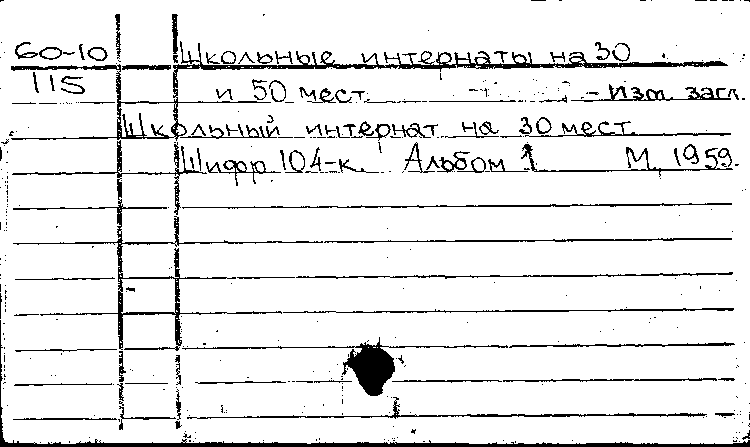 60-10 Школьные интернаты на 30
115 и 50 мест. - Изм. загл.
Школьный интернат на 30 мест.
Шифр 104-к. Альбом 1 М., 1959.